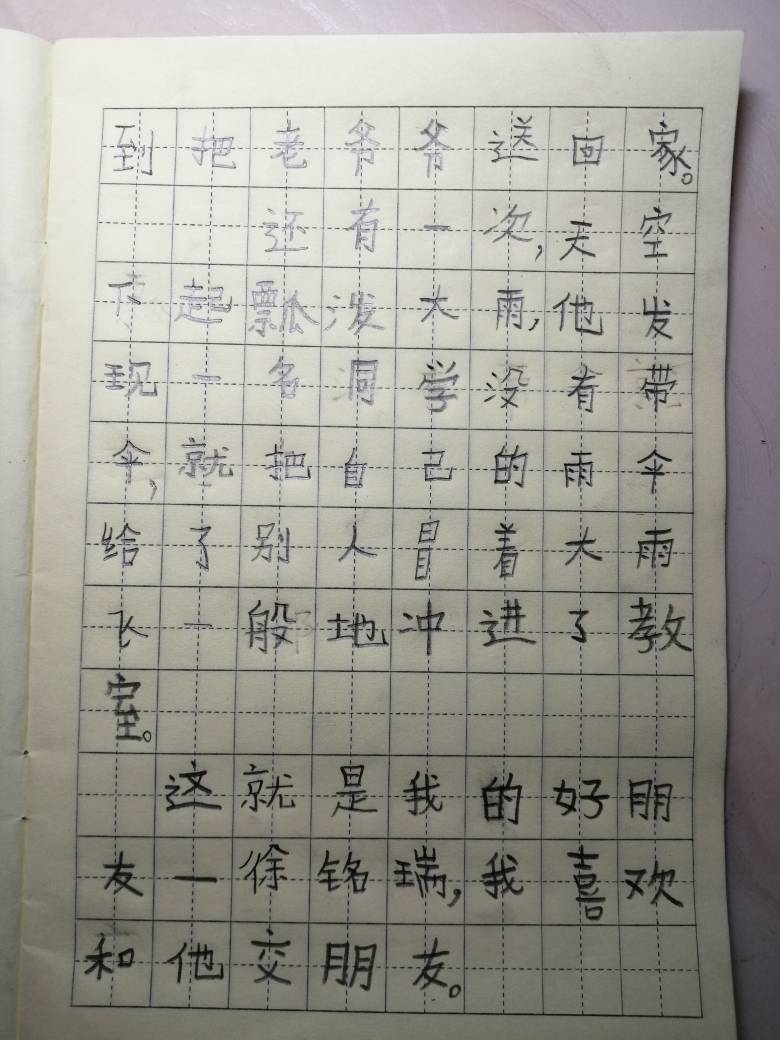 到把老爷爷送回家。
还有一次,天空
下起瓢泼大雨,他发
现一名同学没有带
伞,就把自己的雨伞
给了别人冒着大雨
飞一般地冲进了教
室。
这就是我的好朋
友一徐铭瑞,我喜欢
和他交朋友。